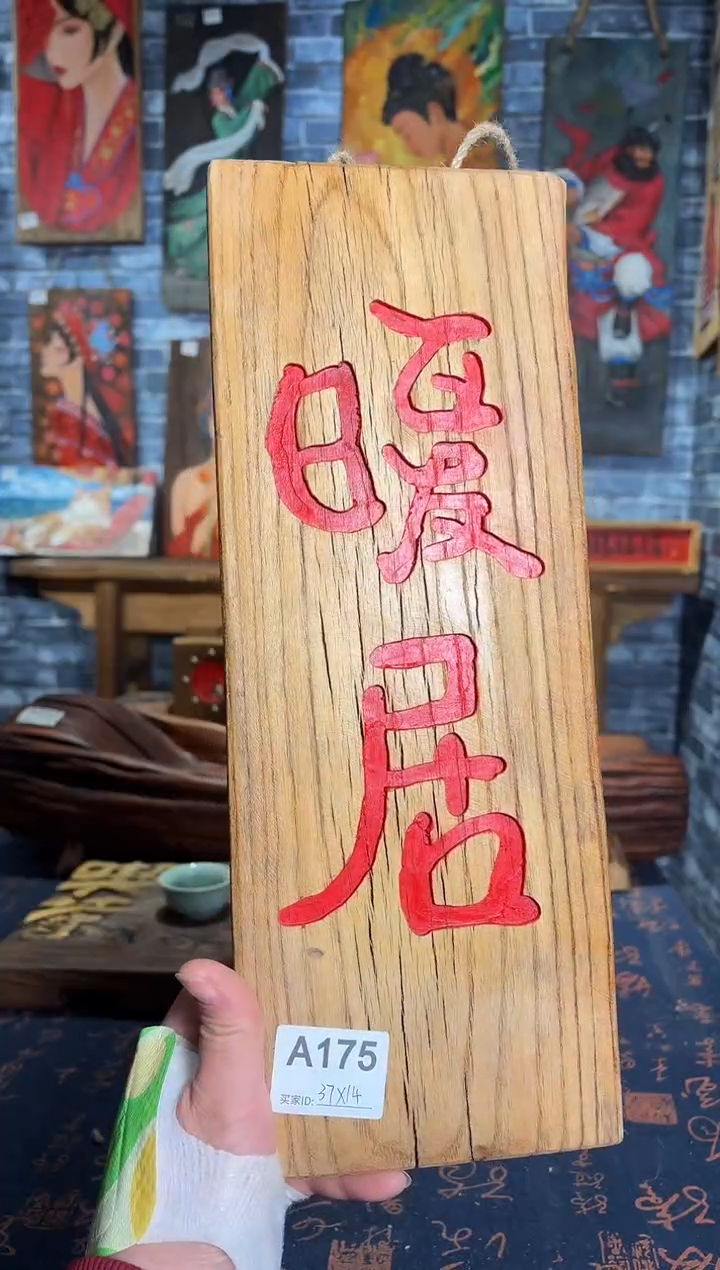 暖居
A175
买家ID: 37X14